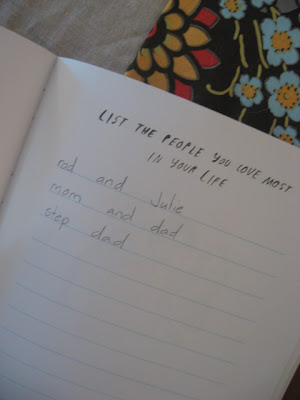 LIST THE PEOPLE YOU LOVE MOST
IN YOUR LIFE
rod and Julie
mom and dad
step dad